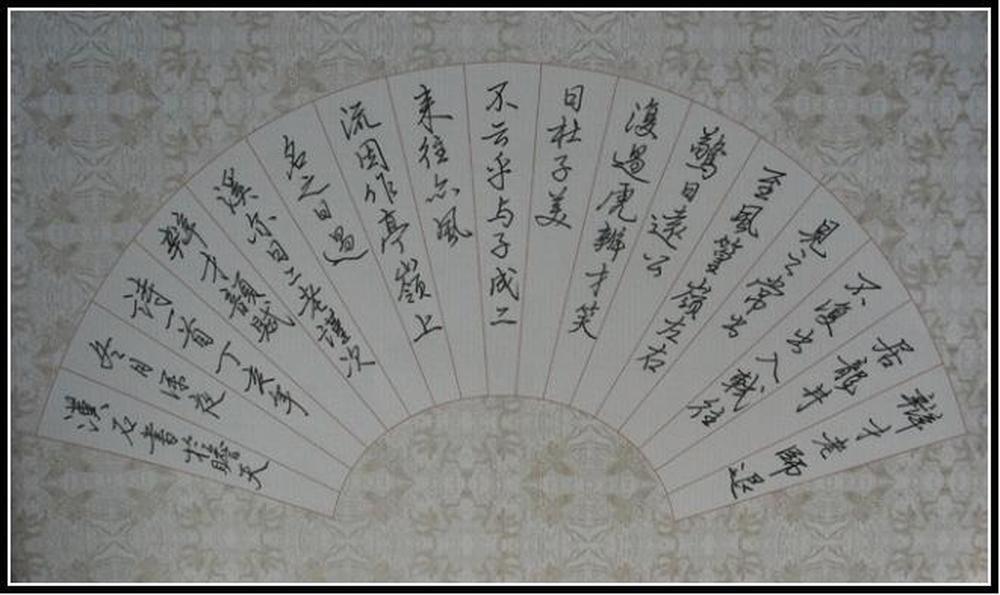 辯才老師退
居龍井
不復出入軾往
見之常出
至風篁嶺左右
驚曰遠公
復過虎辦才笑
曰杜子美
不云乎与子成二
来往亦風
流因作亭嶺上
名之曰過
溪亦曰二老謹次
辯才韻賦
詩一首丁亥年
冬月深夜
漢石書天